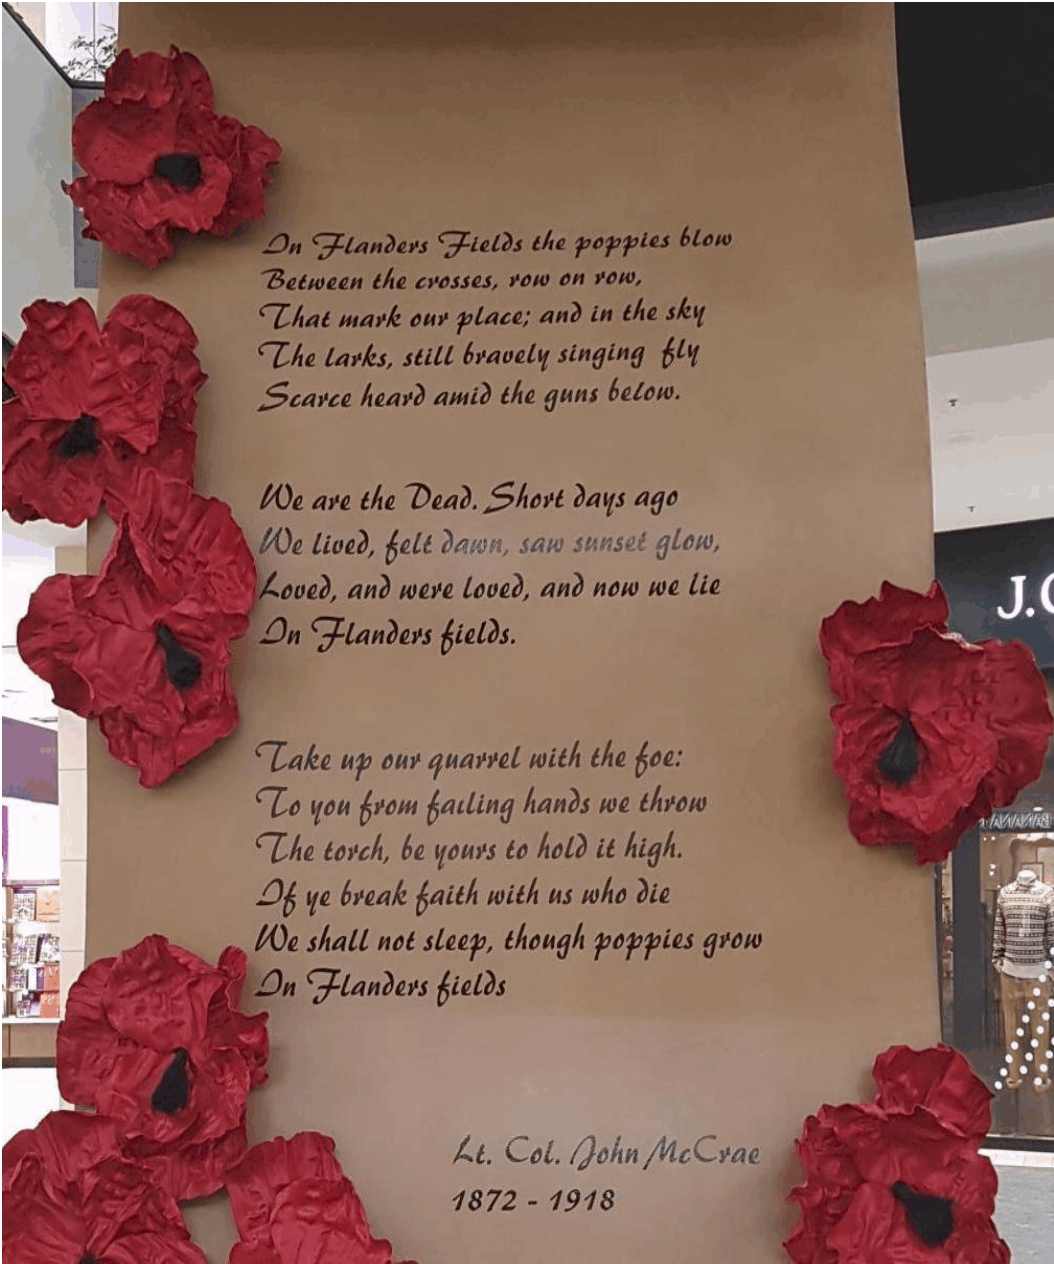 In Flanders Fields the poppies blow
Between the crosses, row on row,
That mark our place; and in the sky
The larks, still bravely singing fly
Scarce heard amid the guns below.
We are the Dead. Short days ago
We lived, felt dawn, saw sunset glow,
Loved, and were loved, and now we lie
In Flanders fields.
Take up our quarrel with the foe:
To you from failing hands we throw
The torch, be yours to hold it high.
If ye break faith with us who die
We shall not sleep, though poppies grow
In Flanders fields
Lt. Col. John McCrae
1872 - 1918
J.